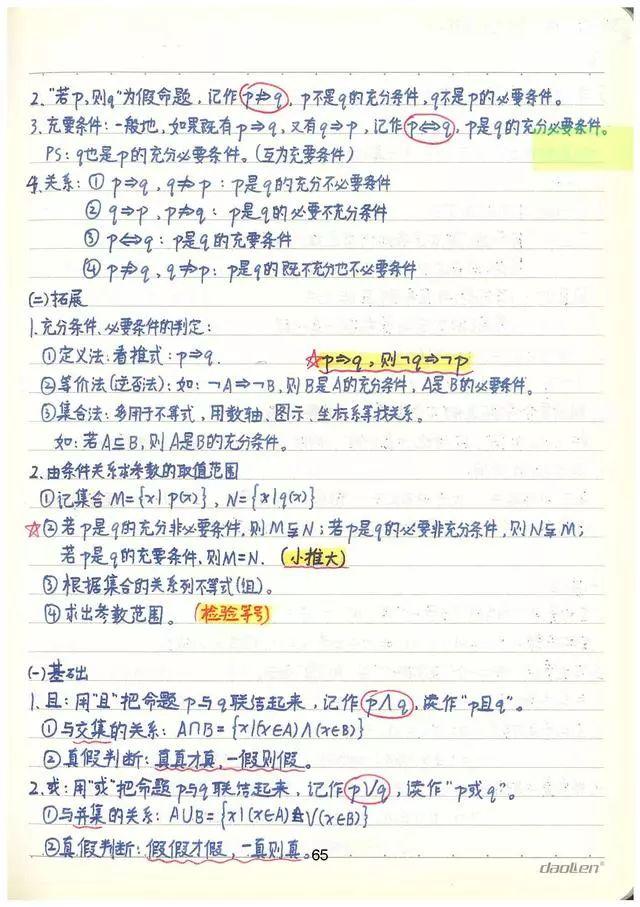 2. "若p,则q"为假命题,记作p⇏q,p不是q的充分条件,q不是p的必要条件。
3. 充要条件:一般地,如果既有p⇒q,又有q⇒p,记作p⇔q,p是q的充分必要条件。
PS:q也是p的充分必要条件。(互为充要条件)
4. 关系:① p⇒q,q⇏p:p是q的充分不必要条件
② q⇒p,p⇏q:p是q的必要不充分条件
③ p⇔q:p是q的充要条件
④ p⇏q,q⇏p:p是q的既不充分也不必要条件
(二)拓展
1. 充分条件、必要条件的判定:
①定义法:看推式:p⇒q. ☆p⇒q,则¬q⇒¬p
②等价法(逆否法):如:¬A⇒¬B,则B是A的充分条件,A是B的必要条件。
③集合法:多用于不等式,用数轴、图示、坐标系等找关系。
如:若A⊆B,则A是B的充分条件。
2. 由条件关系求参数的取值范围
①记集合M={x|p(x)},N={x|q(x)}
☆②若p是q的充分非必要条件,则M⫋N;若p是q的必要非充分条件,则N⫋M;
若p是q的充要条件,则M=N.(小推大)
③根据集合的关系列不等式(组)。
④求出参数范围。(检验等号)
(一)基础
1. 且:用"且"把命题p与q联结起来,记作p∧q,读作"p且q"。
①与交集的关系:A∩B={x|(x∈A)∧(x∈B)}
②真假判断:真真才真,一假则假。
2. 或:用"或"把命题p与q联结起来,记作p∨q,读作"p或q"。
①与并集的关系:A∪B={x|(x∈A)∨(x∈B)}
②真假判断:假假才假,一真则真。65
daolen®